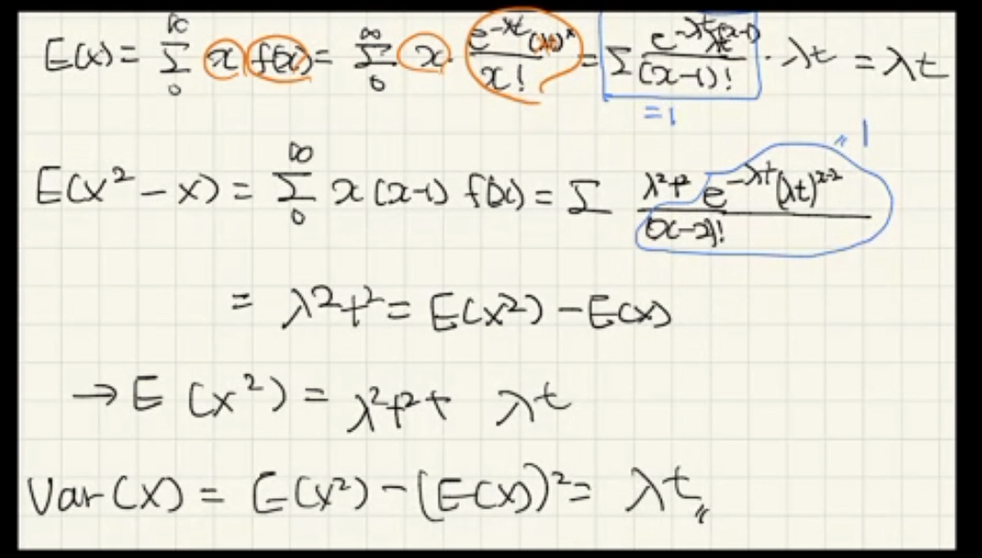 E(x) = Σ₀^∞ x f(x) = Σ₀^∞ x · e^(-λt)(λt)^x / x! = Σ e^(-λt) λt^(x-1) / (x-1)! · λt = λt
= 1
" 1
E(x² - x) = Σ₀^∞ x(x-1) f(x) = Σ λ²t² e^(-λt)(λt)^(x-2) / (x-2)!
= λ²t² = E(x²) - E(x)
→ E(x²) = λ²t² + λt
Var(X) = E(x²) - (E(x))² = λt〃